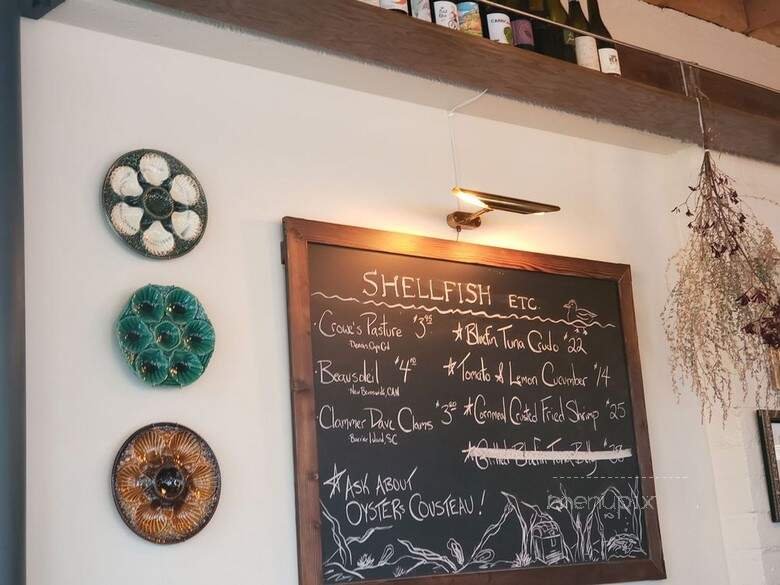 SHELLFISH ETC.
Crowe's Pasture $3.95
Dennis, Cape Cod
Beausoleil $4.00
New Brunswick, CAN
Clammer Dave Clams $3.00
Barrier Island, SC
☆ ASK ABOUT
OYSTERS COUSTEAU!
☆ Bluefin Tuna Crudo $22
☆ Tomato & Lemon Cucumber $14
☆ Cornmeal Crusted Fried Shrimp $25
☆ Grilled Bluefin Tuna Belly
menupix